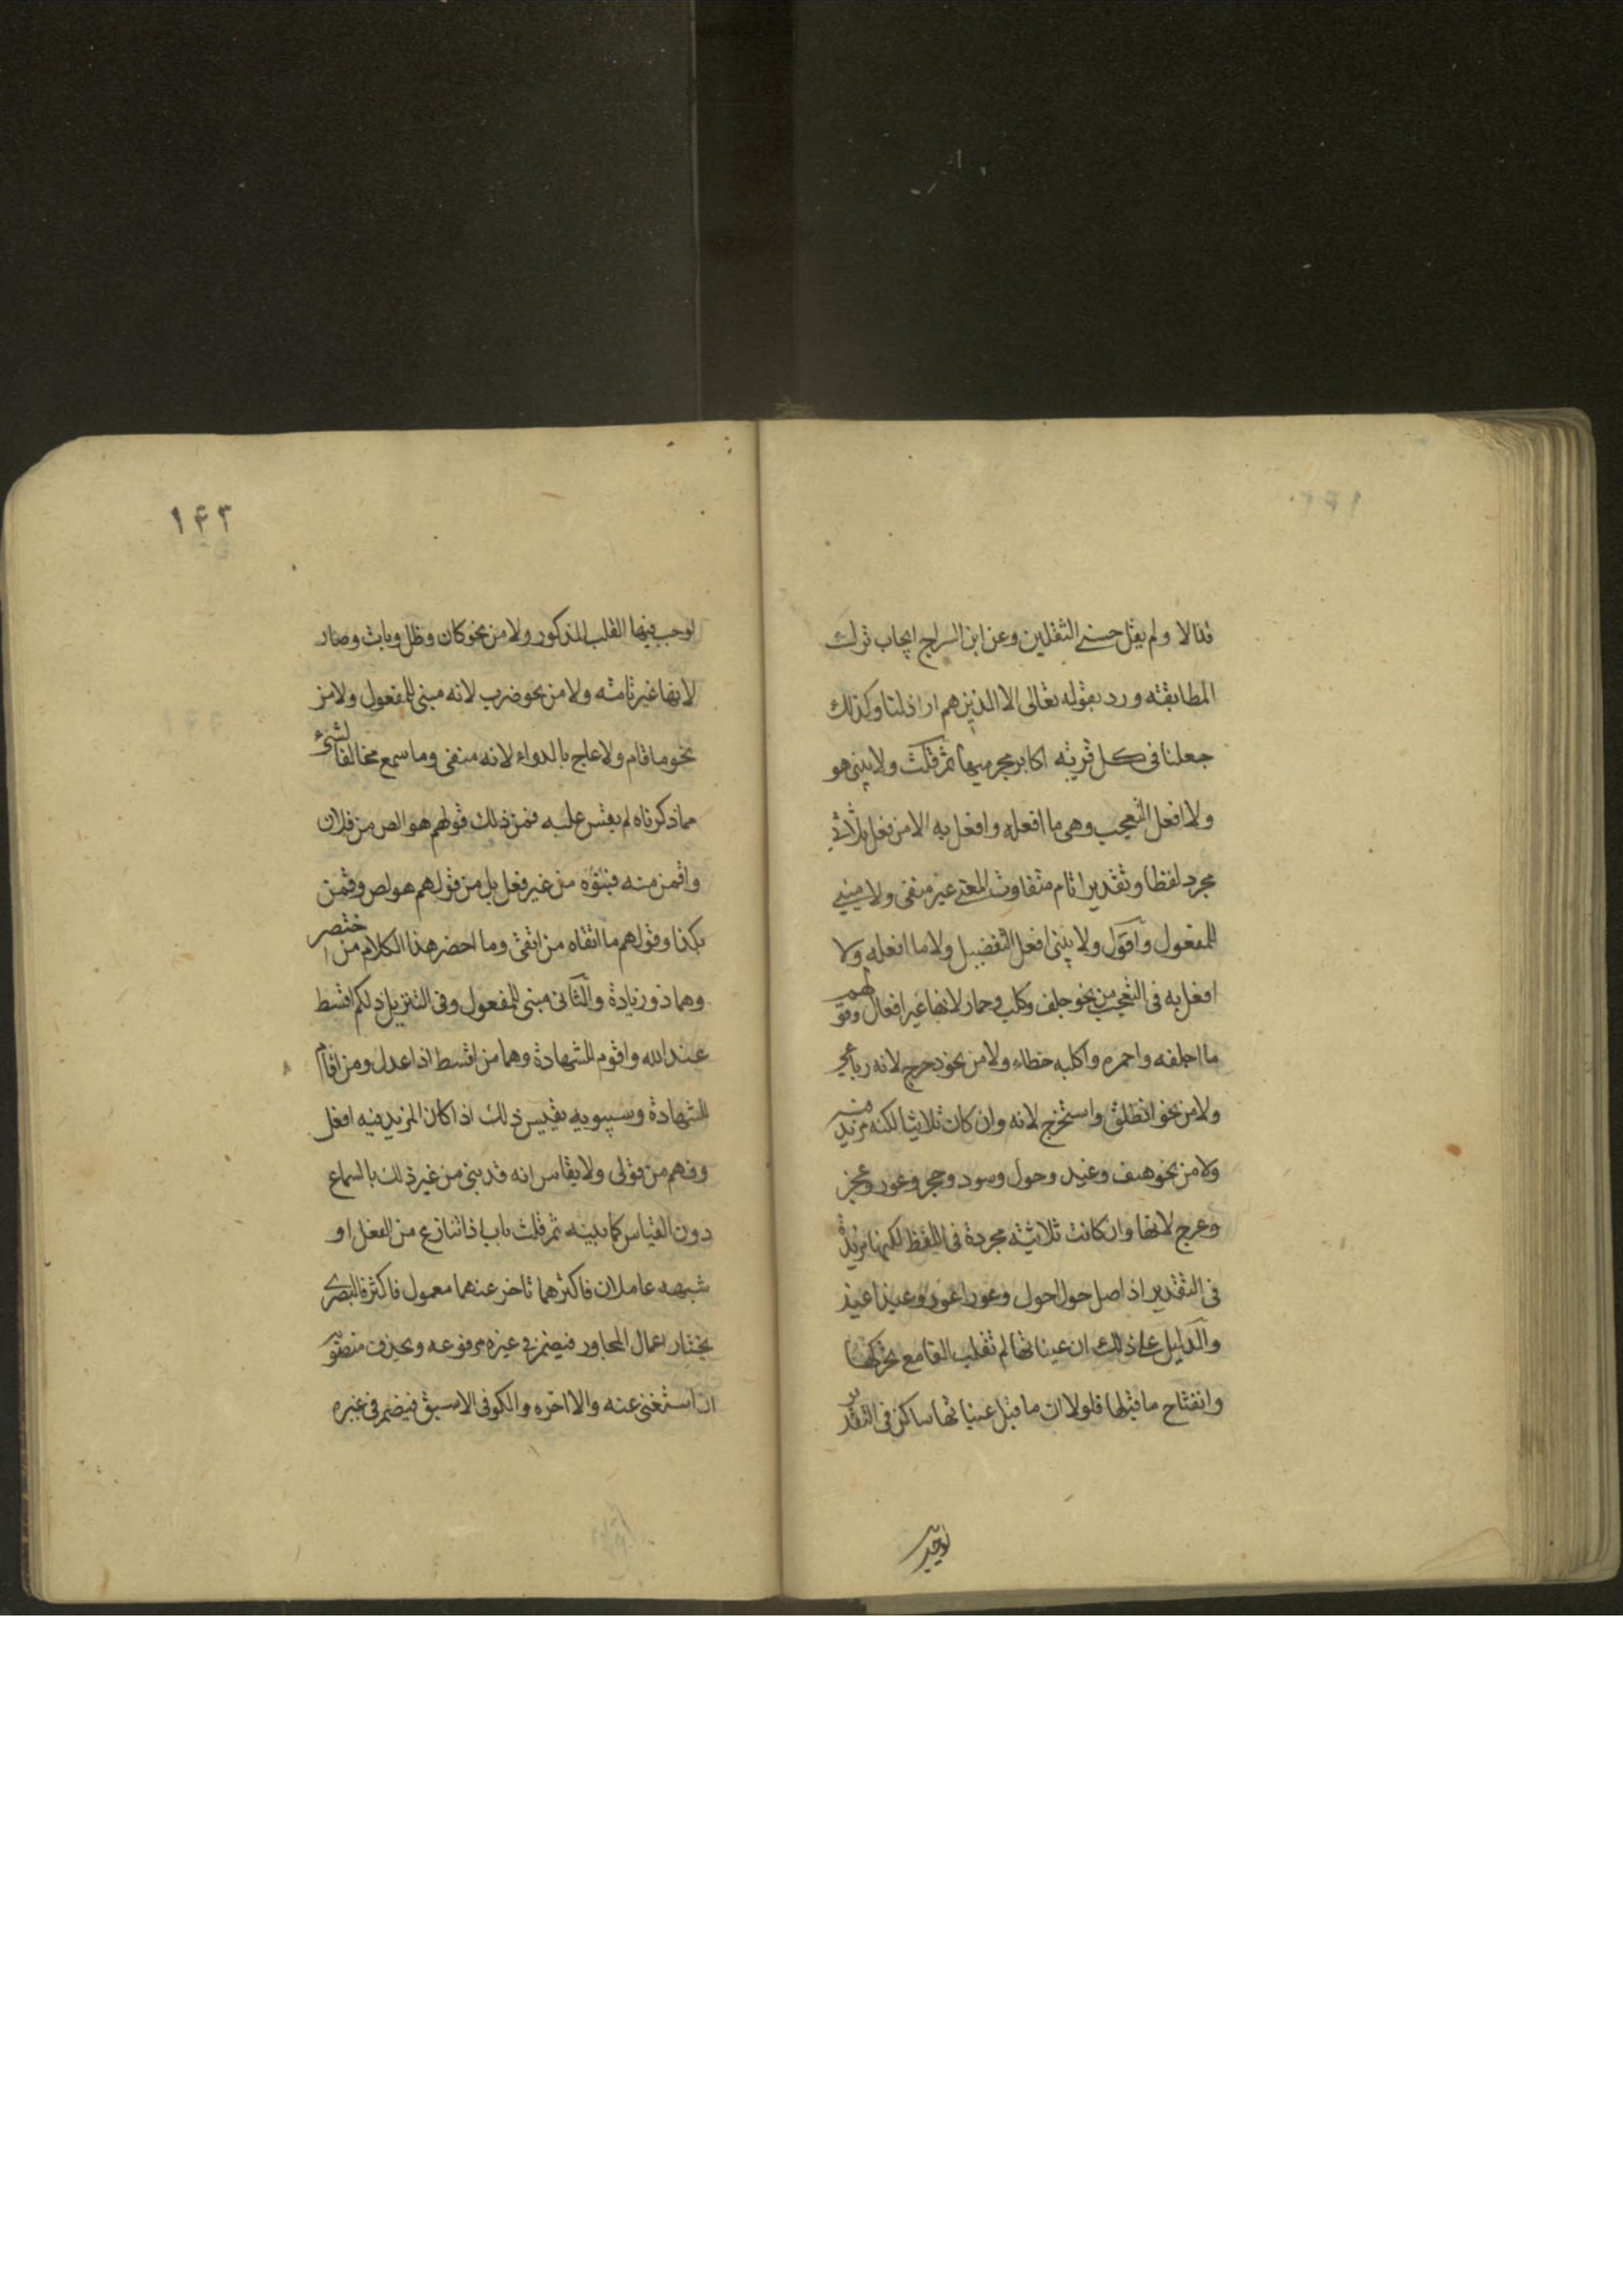 قذالا ولم يقل حسنى الثقلين وعن ابن السراج ايجاب ترك
المطابقة ورد بقوله تعالى الا الذين هم اراذلنا وكذلك
جعلنا فى كل قرية اكابر مجرميها ثم قلت ولا يبنى هو
ولا افعل التعجب وهى ما افعله وافعل به الا من فعل ثلاثى
مجرد لفظا وتقديرا تام متفاوت المعنى غير منفى ولا مبنى
للمفعول واقول ولا يبنى افعل التفضيل ولا ما افعله ولا
افعل به فى التعجب من نحو جلف وكلب وحمار لانها غير افعال وقولهم
ما اجلفه واحمره واكلبه خطاء ولا من نحو دحرج لانه رباعى
ولا من نحو انطلق واستخرج لانه وان كان ثلاثيا لكنه مزيد فيه
ولا من نحو هيف وغيد وحول وسود وحمر وعور وعجز
وعرج لانها وان كانت ثلاثية مجردة فى اللفظ لكنها مزيدة
فى التقدير اذ اصل حول احول وعور اعور وغيد اغيد
والدليل على ذلك ان عيناتها لم تقلب الفا مع تحركها
وانفتاح ما قبلها فلولا ان ما قبل عيناتها ساكن فى التقدير
لوجب
١٤٣
لوجب فيها القلب المذكور ولا من نحو كان وظل وبات وصار
لانها غير تامة ولا من نحو ضرب لانه مبنى للمفعول ولا من
نحو ما قام ولا عاج بالدواء لانه منفى وما سمع مخالفا لشىء
مما ذكرناه لم يقس عليه فمن ذلك قولهم هو الص من فلان
واقمن منه فبنوه من غير فعل بل من قولهم هو لص وقمن
بكذا وقولهم ما اتقاه من اتقى وما اخصر هذا الكلام من اختصر
وهما ذو زيادة والثانى مبنى للمفعول وفى التنزيل ذلكم اقسط
عند الله واقوم للشهادة وهما من اقسط اذا عدل ومن اقام
الشهادة وسيبويه يقيس ذلك اذا كان المزيد فيه افعل
وفهم من قولى ولا يقاس انه قد يبنى من غير ذلك بالسماع
دون القياس كما بينه ثم قلت باب اذا تنازع من الفعل او
شبهه عاملان فاكثر ما تاخر عنهما معمول فاكثر فالبصرى
يختار اعمال المجاور فيضمر فى غيره مرفوعه ويحذف منصوبه
ان استغنى عنه والا اخره والكوفى الاسبق فيضمر فى غيره